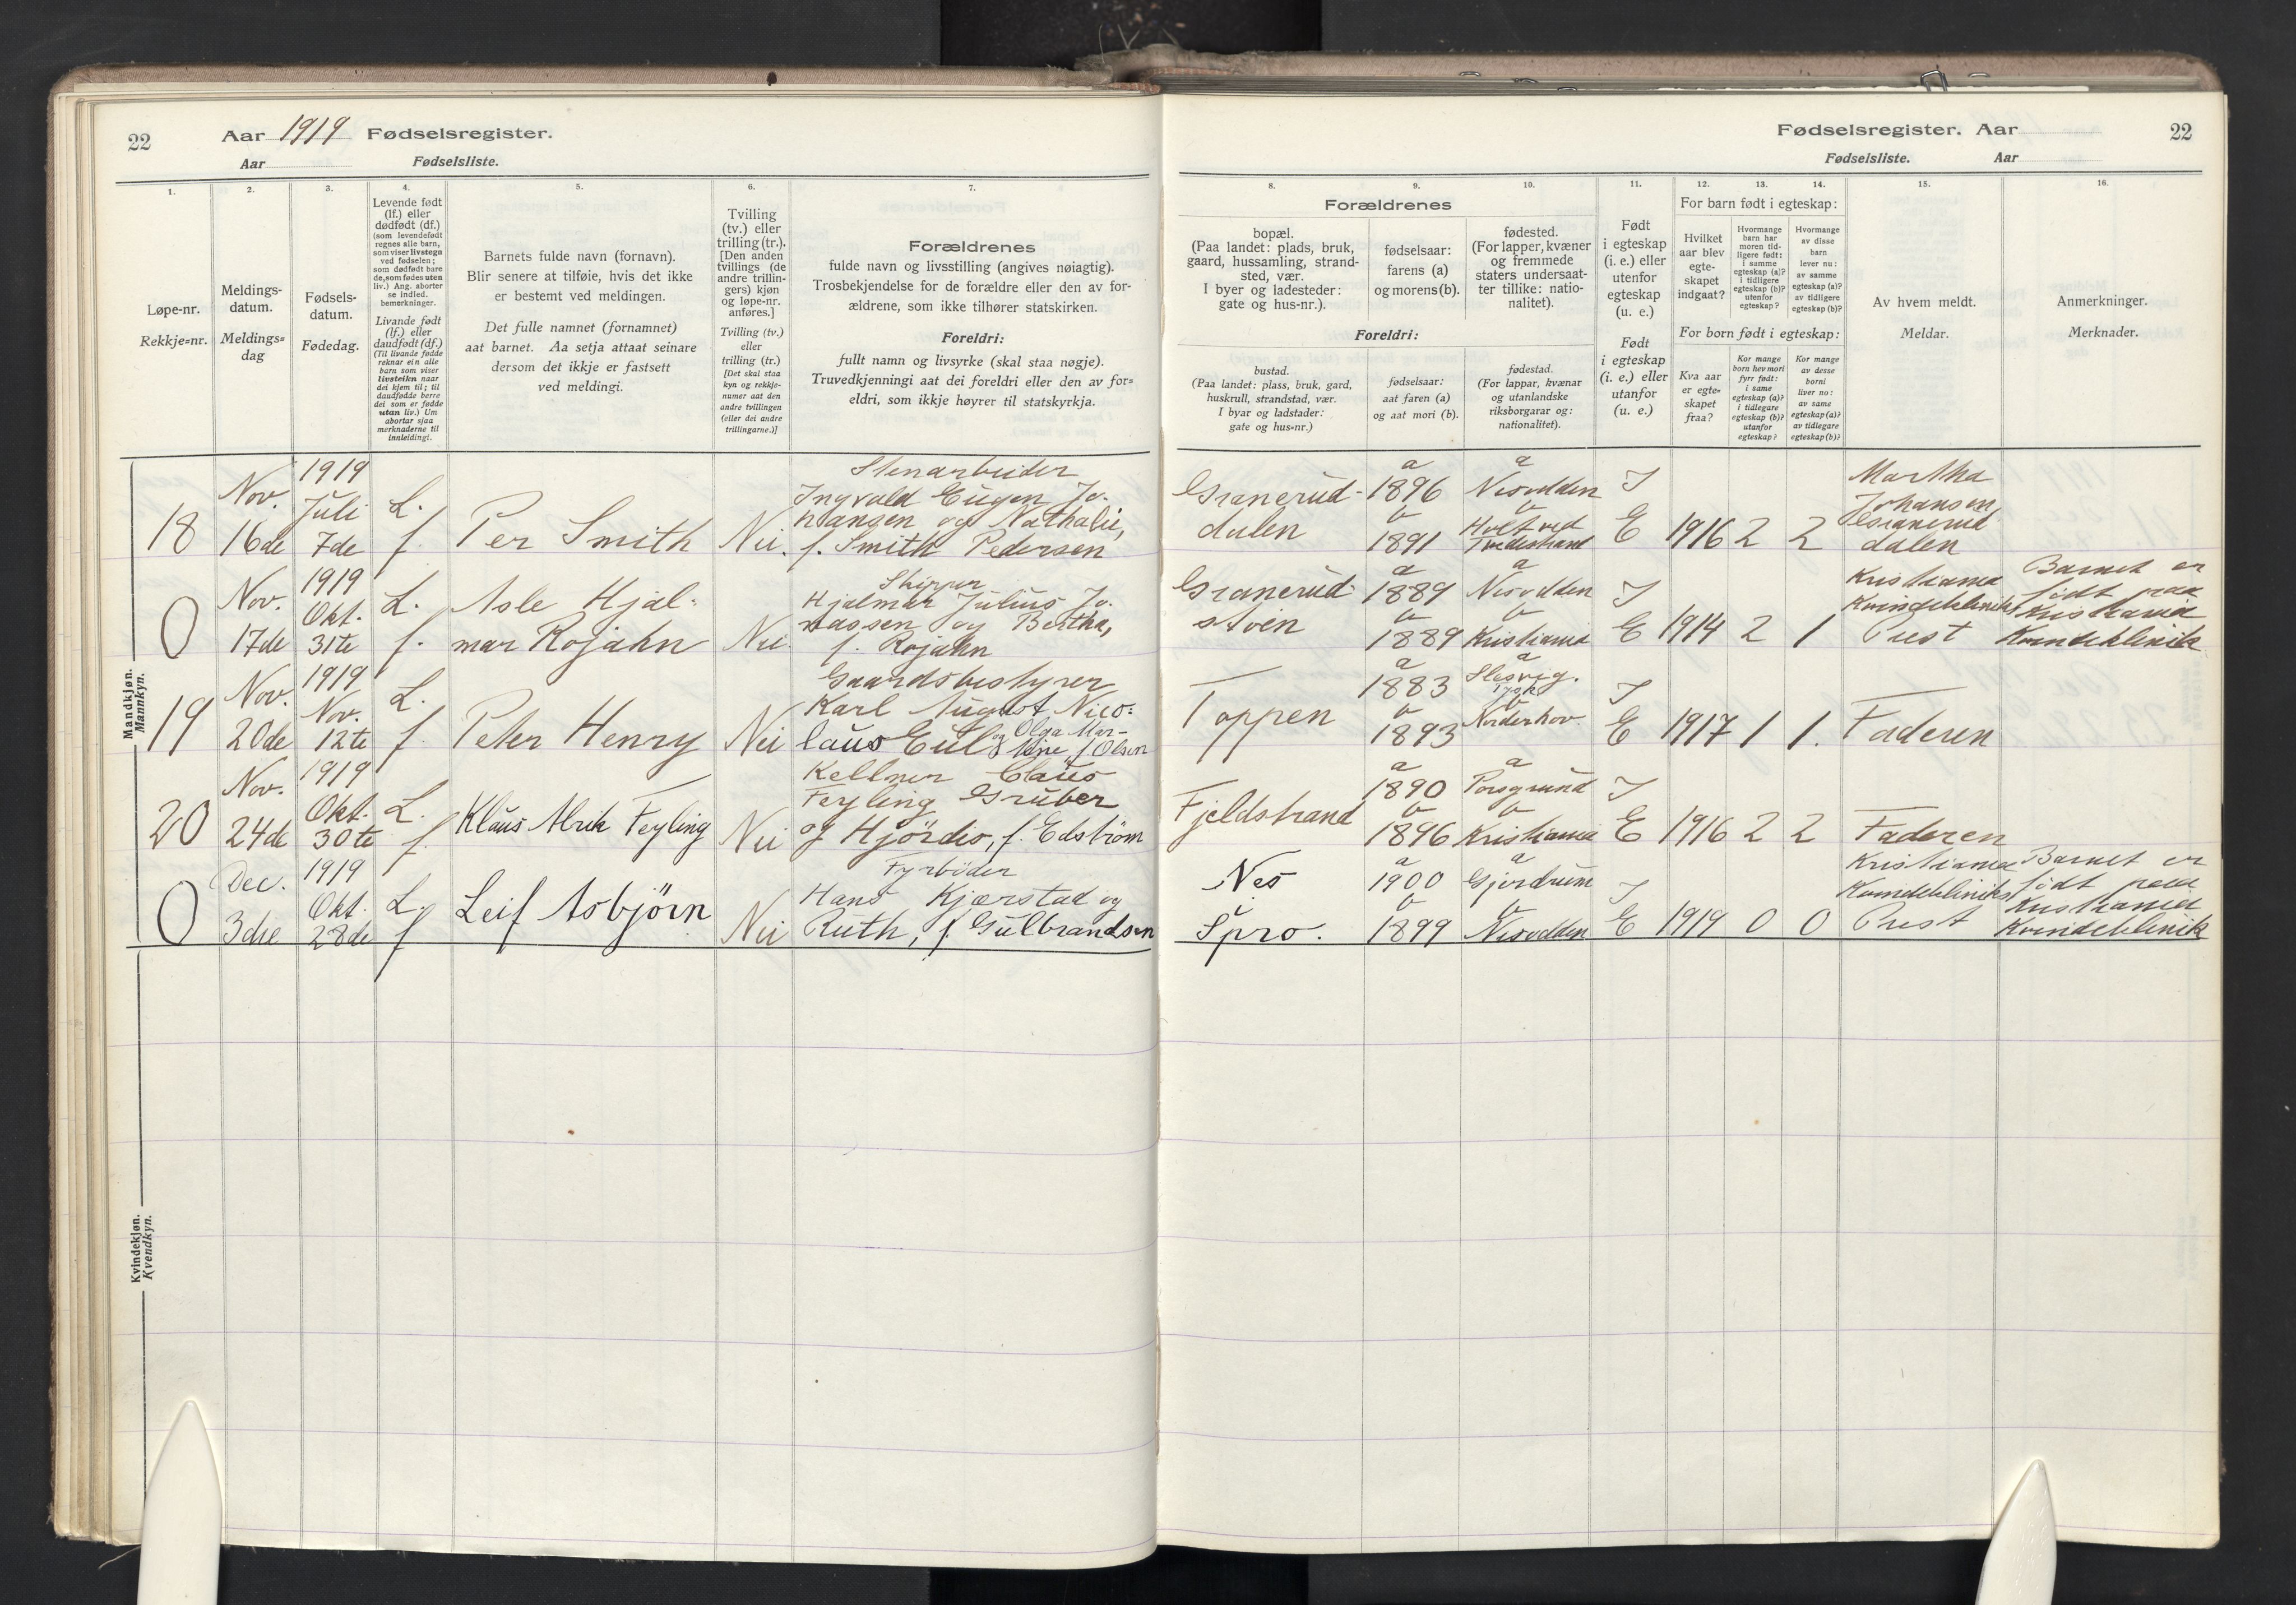 22
Aar 1919 Fødselsregister.
Aar Fødselsliste.
1.
Løpe-nr.
Rekkje=nr.
2.
Meldings-
datum.
Meldings=
dag
3.
Fødsels-
datum.
Fødedag.
4.
Levende født
(lf.) eller
dødfødt (df.)
(som levendefødt
regnes alle barn,
som viser livstegn
ved fødselen;
som dødfødt bare
de, som fødes uten
liv.) Ang. aborter
se indled.
bemerkninger.
Livande født
(lf.) eller
daudfødt (df.)
(Til livande fødde
reknar ein alle
barn som viser
livsteikn naar
dei kjem til; til
daudfødde berre
dei som er fødde
utan liv.) Um
abortar sjaa
merknaderne til
innleidingi.
5.
Barnets fulde navn (fornavn).
Blir senere at tilføie, hvis det ikke
er bestemt ved meldingen.
Det fulle namnet (fornamnet)
aat barnet. Aa setja attaat seinare
dersom det ikkje er fastsett
ved meldingi.
6.
Tvilling
(tv.) eller
trilling (tr.).
[Den anden
tvillings (de
andre trillin-
gers) kjøn
og løpe-nr.
anføres.]
Tvilling (tv.)
eller
trilling (tr.)
[Det skal staa
kyn og rekkje-
numer aat den
andre tvillingen
(eller dei andre
trillingarne.)]
7.
Forældrenes
fulde navn og livsstilling (angives nøiagtig).
Trosbekjendelse for de forældre eller den av for-
ældrene, som ikke tilhører statskirken.
Foreldri:
fullt namn og livsyrke (skal staa nøgje).
Truvedkjenningi aat dei foreldri eller den av for=
eldri, som ikkje høyrer til statskyrkja.
Mandkjøn.
Mannkyn.
18
Nov.
16de
1919
Juli
7de
L.
f.
Per Smith
Nei.
Stenarbeider
Ingvald Eugen Jo-
hansen og Nathalie,
f. Smith Pedersen
0
Nov.
17de
1919
Okt.
31te
L.
f.
Asle Hjal-
mar Rojahn
Nei.
Skipper
Hjalmar Julius Jo-
nassen og Bertha,
f. Rojahn
19
Nov.
20de
1919
Nov.
12te
L.
f.
Peter Henry
Nei
Gaardsbestyrer
Karl August Nico-
laus Euls og Olga Mar-
f. Olsen
20
Nov.
24de
1919
Okt.
30te
L.
f.
Klaus Alrik Feyling
Nei
Kellner Claus
Feyling Gruber
og Hjördis, f. Edström
0
Dec.
3die
1919
Okt.
28de
L.
f
Leif Asbjörn
Nei
Fyrböder
Hans Kjærstad og
Ruth, f. Gulbrandsen
Kvindekjøn.
Kvendkyn.
Fødselsregister. Aar
22
Fødselsliste. Aar
8.
Forældrenes
bopæl.
(Paa landet: plads, bruk,
gaard, hussamling, strand-
sted, vær.
I byer og ladesteder:
gate og hus-nr.).
Foreldri:
bustad.
(Paa landet: plass, bruk, gard,
huskrull, strandstad, vær.
I byar og ladstader:
gate og hus=nr.)
9.
fødselsaar:
farens (a)
og morens (b).
fødselsaar:
aat faren (a)
og aat mori (b).
10.
fødested.
(For lapper, kvæner
og fremmede
staters undersaat-
ter tillike: natio-
nalitet).
fødestad.
(For lappar, kvænar
og utanlandske
riksborgarar og:
nationalitet).
11.
Født
i egteskap
(i. e.) eller
utenfor
egteskap
(u. e.)
Født
i egteskap
(i. e.) eller
utanfor
(u. e.)
For barn født i egteskap:
12.
Hvilket
aar blev
egte-
skapet
indgaat?
For born født i egteskap:
Kva aar
er egte-
skapet
fraa?
13.
Hvormange
barn har
moren tid-
ligere født:
i samme
egteskap (a)?
i tidligere
egteskap (b)?
utenfor
egteskap?
Kor mange
born hev mori
fyrr født:
i same
egteskap (a)?
i tidlegare
egteskap (b)?
utanfor
egteskap?
14.
Hvormange
av disse
barn
lever nu:
av samme
egteskap (a)?
av tidligere
egteskap (b)?
Kor mange
av desse
borni
liver no:
av same
egteskap (a)?
av tidlegare
egteskap (b)?
15.
Av hvem meldt.
Meldar.
16.
Anmerkninger.
Merknader.
Granerud-
dalen
a
1896
b
1891
a
Nesodden
b
Holt ved
Tvedestrand
I
E
1916
2
2
Martha
Johansen
Granerud
dalen
Granerud
støen
a
1889
b
1889
a
Nesodden
b
Kristiania
I
E
1914
2
1
Kristiania
Kvindekliniks
Prest
Barnet er
født paa
Kristiania
Kvindeklinik
Toppen
a
1883
b
1893
a
Slesvig.
Tysk
b
Norderhov.
I
E
1917
1
1.
Faderen
Fjeldstrand
a
1890
b
1896
a
Porsgrund
b
Kristiania
I
E
1916
2
2
Faderen
Nes
Spro.
a
1900
b
1899
a
Gjerdrum
b
Nesodden
I
E
1919
0
0
Kristiania
Kvindekliniks
Prest
Barnet er
født paa
Kristiania
Kvindeklinik